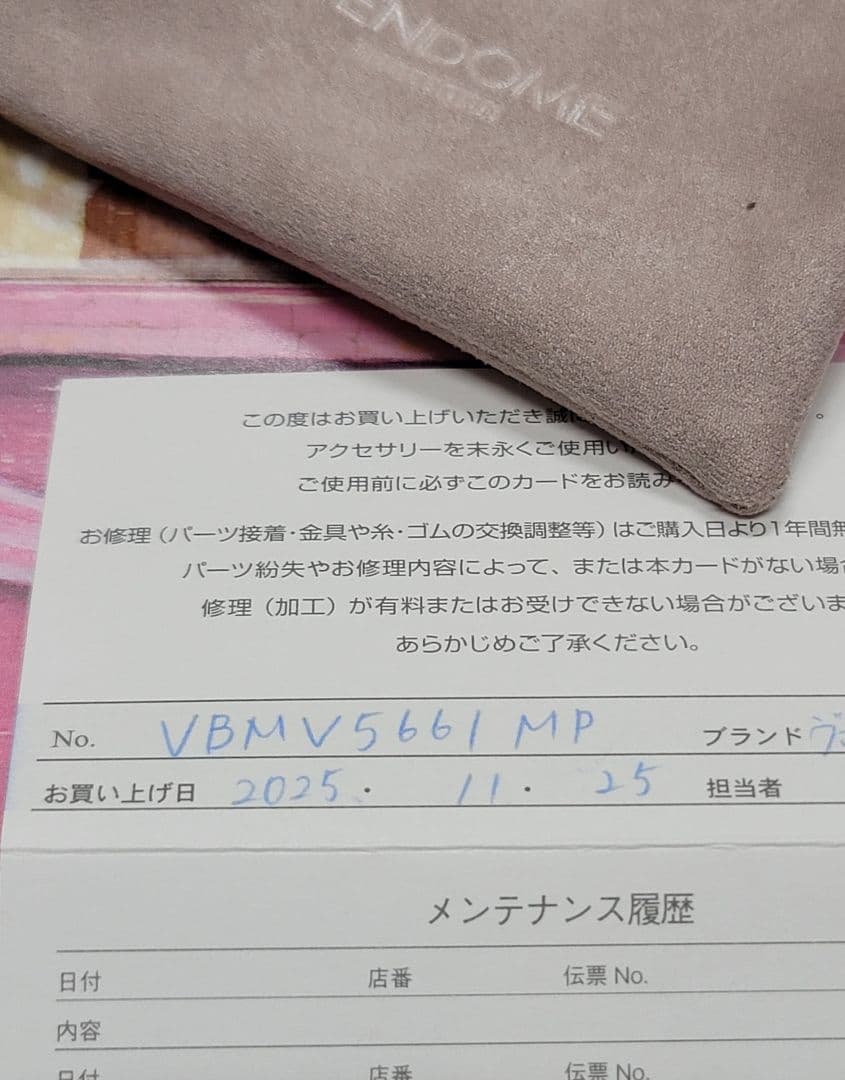 ENDOME
この度はお買い上げいただき誠に
アクセサリーを末永くご使用い
ご使用前に必ずこのカードをお読み
お修理（パーツ接着・金具や糸・ゴムの交換調整等）はご購入日より1年間無
パーツ紛失やお修理内容によって、または本カードがない場合
修理（加工）が有料またはお受けできない場合がございま
あらかじめご了承ください。
No. VBMV5661MP ブランド ヴ
お買い上げ日 2025. 11. 25 担当者
メンテナンス履歴
日付 店番 伝票 No.
内容
日付 店番 伝票 No.